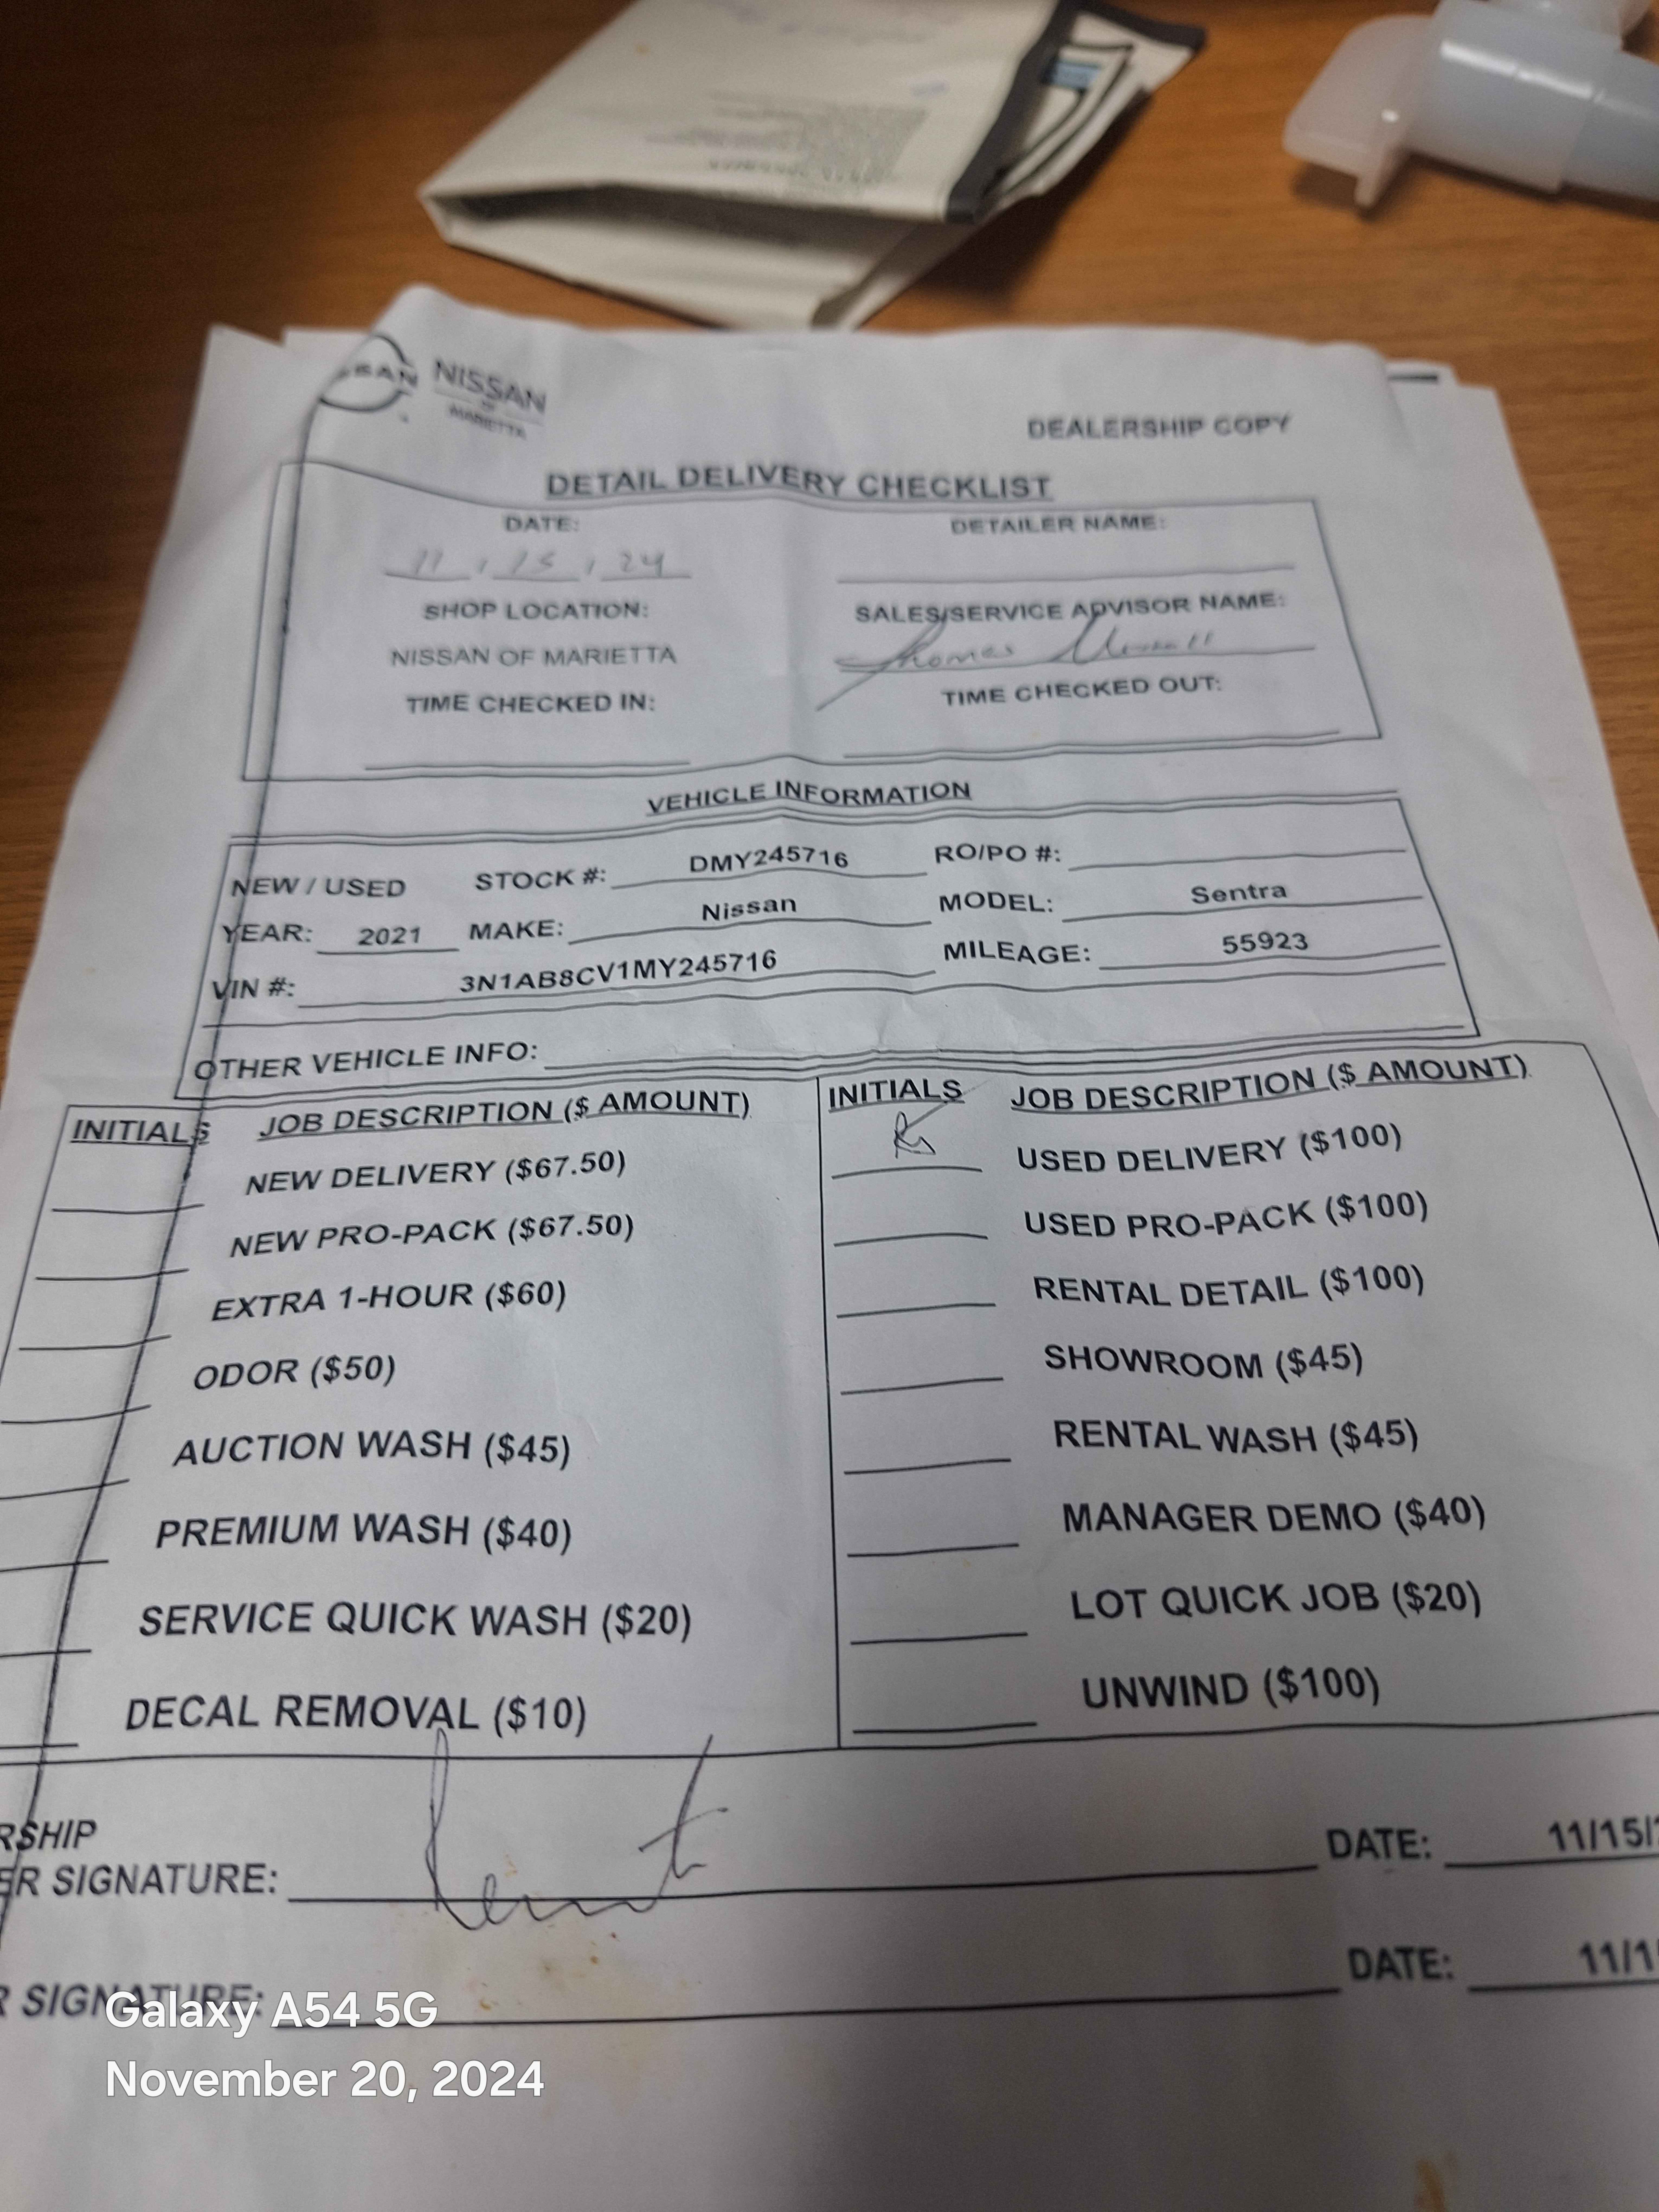 SSAN NISSAN
OF
MARIETTA
DEALERSHIP COPY
DETAIL DELIVERY CHECKLIST
DATE: DETAILER NAME:
11 / 15 / 24
SHOP LOCATION: SALES/SERVICE ADVISOR NAME:
NISSAN OF MARIETTA Thomas
TIME CHECKED IN: TIME CHECKED OUT:
VEHICLE INFORMATION
NEW / USED STOCK #: DMY245716 RO/PO #:
YEAR: 2021 MAKE: Nissan MODEL: Sentra
VIN #: 3N1AB8CV1MY245716 MILEAGE: 55923
OTHER VEHICLE INFO:
INITIALS JOB DESCRIPTION ($ AMOUNT) INITIALS JOB DESCRIPTION ($ AMOUNT)
NEW DELIVERY ($67.50) USED DELIVERY ($100)
NEW PRO-PACK ($67.50) USED PRO-PACK ($100)
EXTRA 1-HOUR ($60) RENTAL DETAIL ($100)
ODOR ($50) SHOWROOM ($45)
AUCTION WASH ($45) RENTAL WASH ($45)
PREMIUM WASH ($40) MANAGER DEMO ($40)
SERVICE QUICK WASH ($20) LOT QUICK JOB ($20)
DECAL REMOVAL ($10) UNWIND ($100)
RSHIP
ER SIGNATURE: DATE: 11/15/
R SIGNATURE: DATE: 11/1
Galaxy A54 5G
November 20, 2024